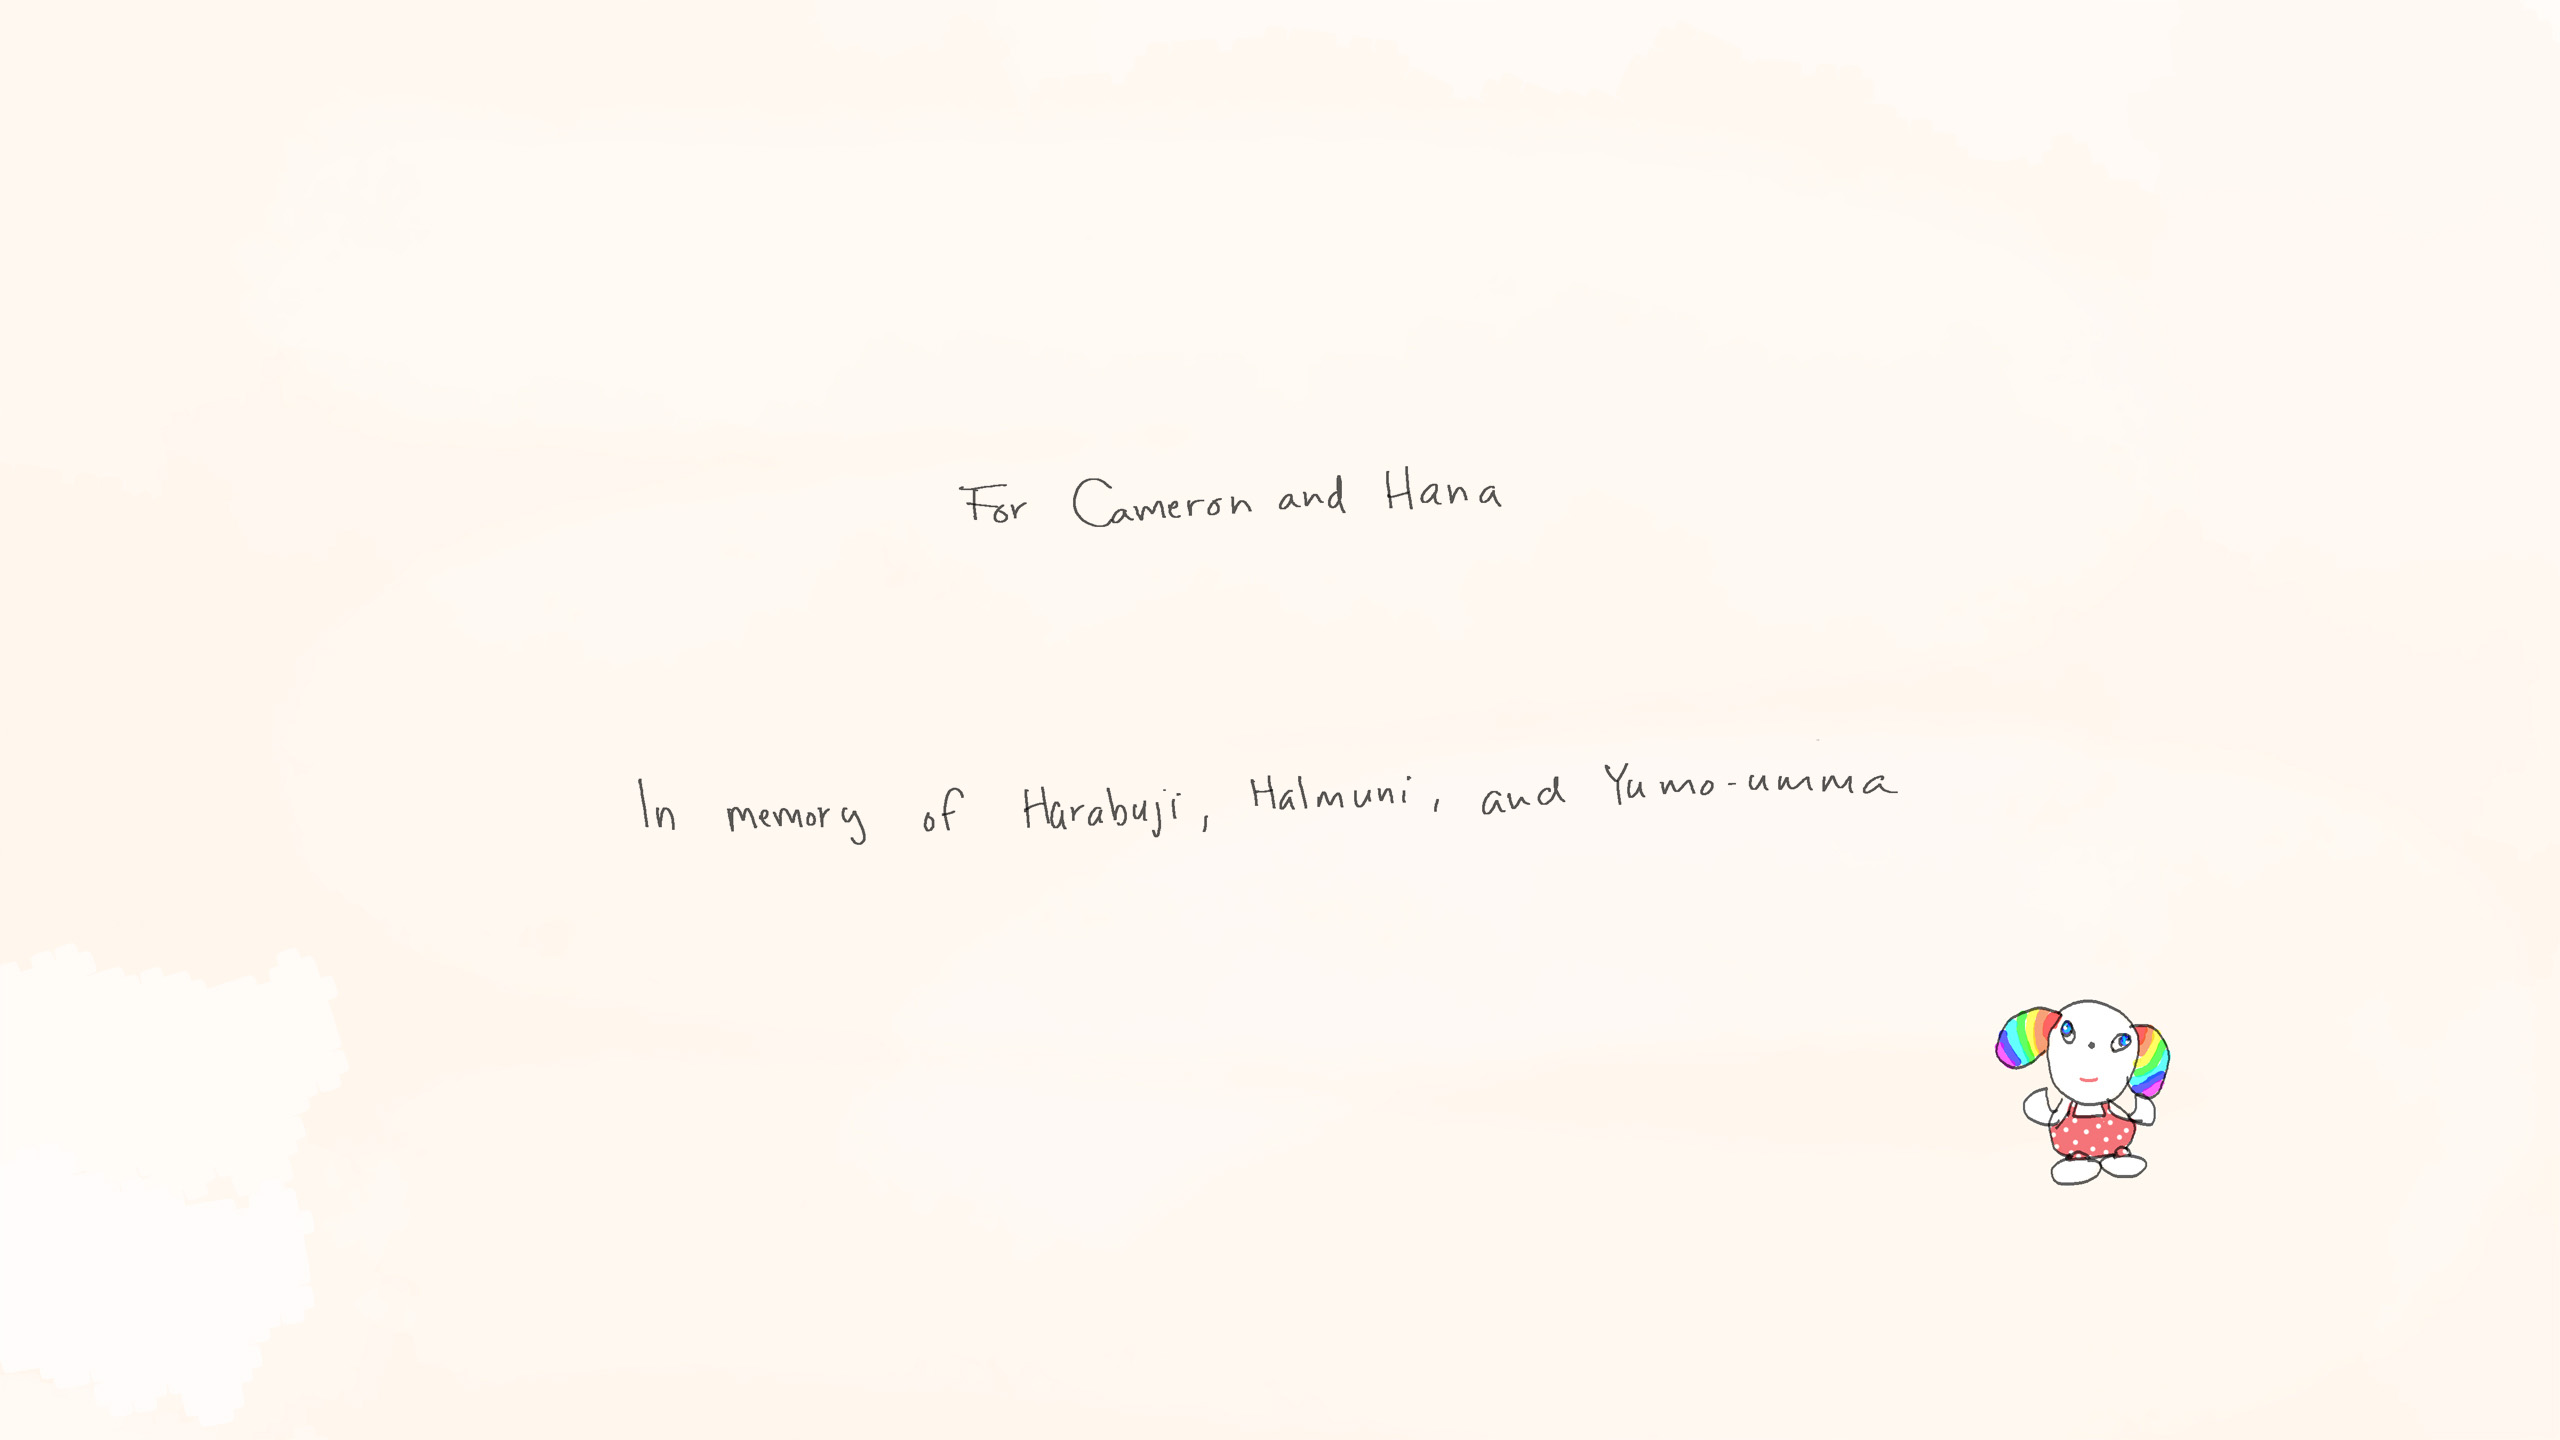 For Cameron and Hana
In memory of Harabuji, Halmuni, and Yumo-umma